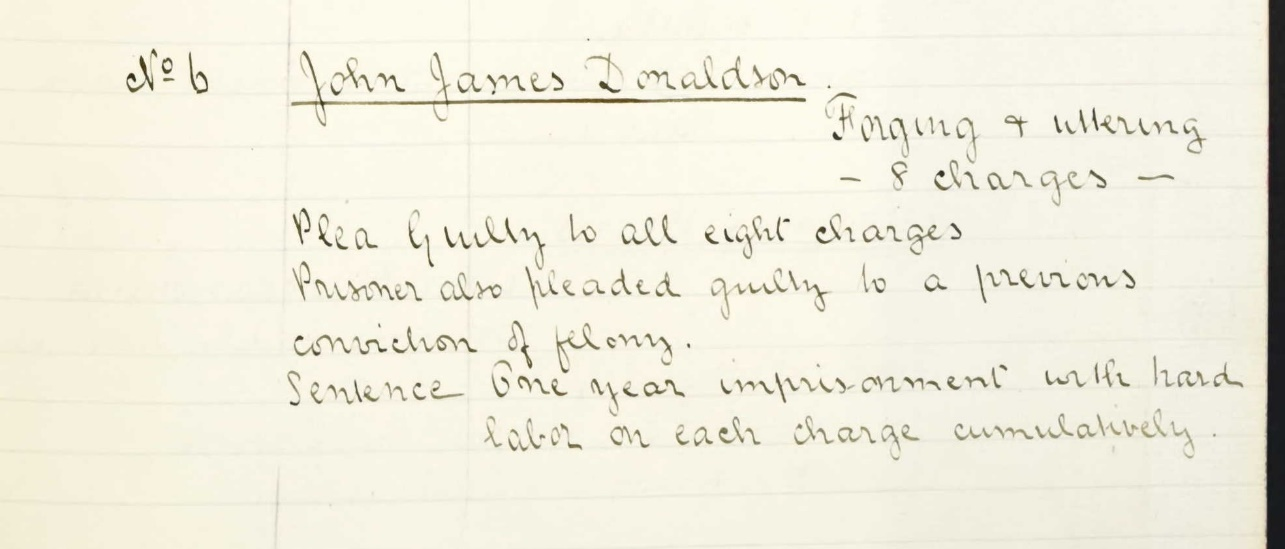 Nº 6 John James Donaldson.
Forging & uttering
– 8 charges –
Plea Guilty to all eight charges
Prisoner also pleaded guilty to a previous
conviction of felony.
Sentence One year imprisonment with hard
labor on each charge cumulatively.